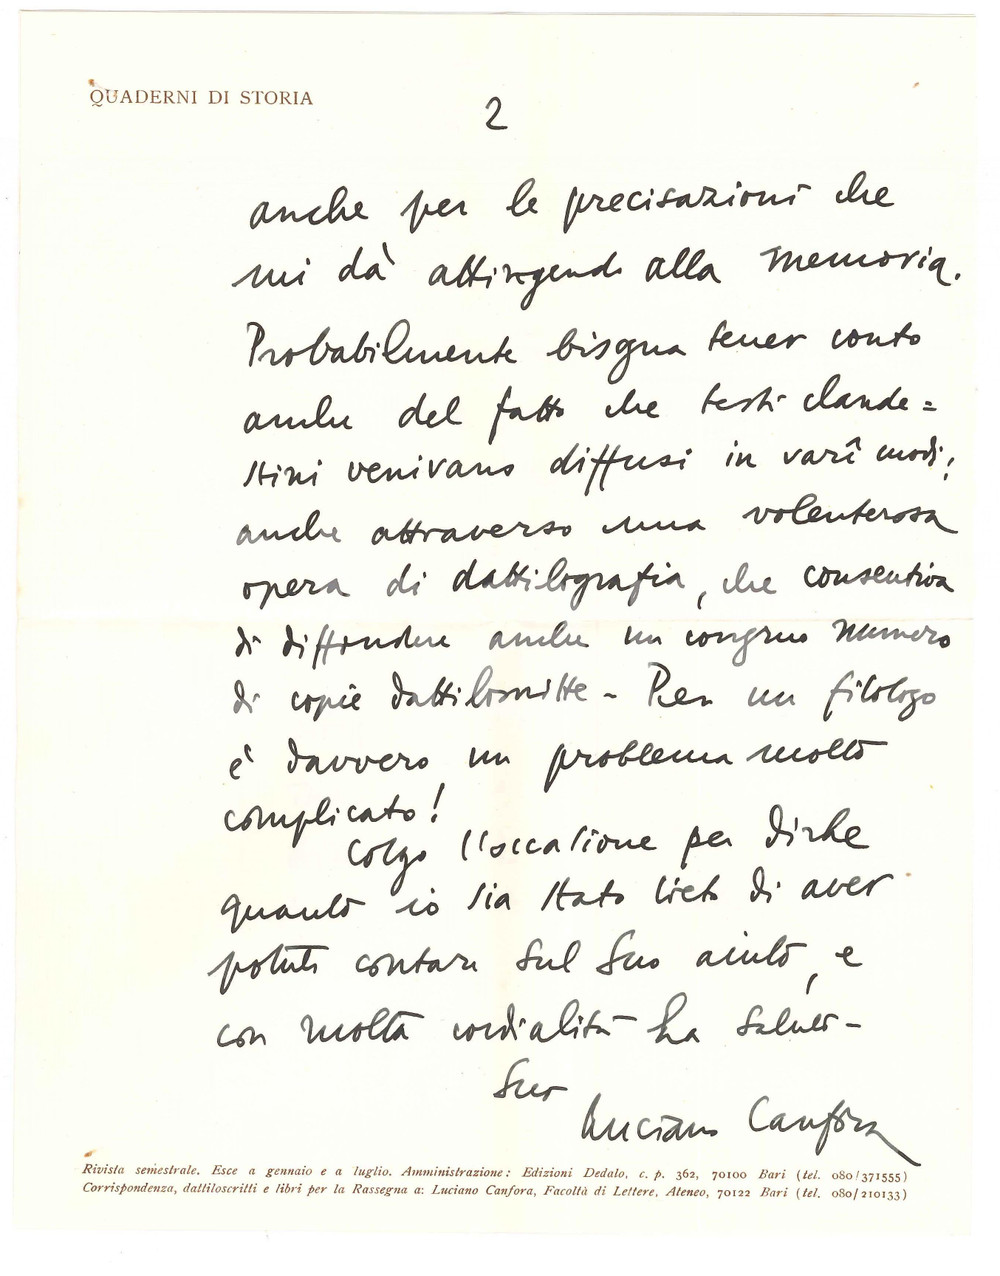 QUADERNI DI STORIA
2
anche per le precisazioni che
mi dà attingendo alla memoria.
Probabilmente bisogna tener conto
anche del fatto che testi clande=
stini venivano diffusi in varî modi;
anche attraverso una volenterosa
opera di dattilografia, che consentiva
di diffondere anche un congruo numero
di copie dattiloscritte - Per un filologo
è davvero un problema molto
complicato!
Colgo l'occasione per dirLe
quanto io sia stato lieto di aver
potuto contare sul Suo aiuto, e
con molta cordialità La saluto -
Suo
Luciano Canfora
Rivista semestrale. Esce a gennaio e a luglio. Amministrazione: Edizioni Dedalo, c. p. 362, 70100 Bari (tel. 080/371555)
Corrispondenza, dattiloscritti e libri per la Rassegna a: Luciano Canfora, Facoltà di Lettere, Ateneo, 70122 Bari (tel. 080/210133)